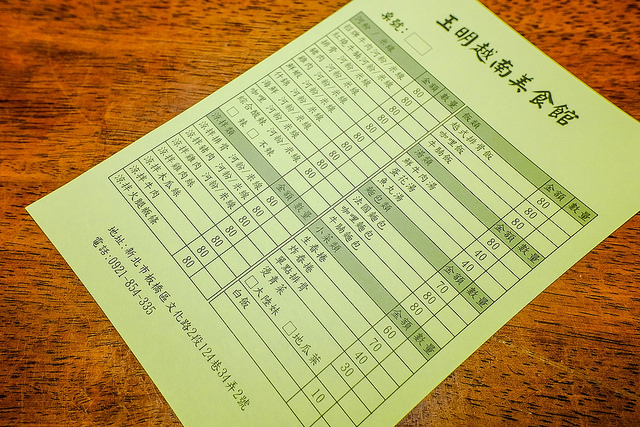 玉明越南美食館
桌號:
河粉/米線 金額 數量
鮮牛肉河粉/米線 80
紅燒牛腩河粉/米線 80
排骨 河粉/米線 80
豬肉 河粉/米線 80
雞肉 河粉/米線 80
鮮蝦 河粉/米線 80
什錦 河粉/米線 80
海鮮 河粉/米線 80
咖哩 河粉/米線 80
綜合酸辣 河粉/米線 80
辣 不辣
涼拌類 金額 數量
涼拌排骨 河粉/米線 80
涼拌豬肉 河粉/米線 80
涼拌雞肉 河粉/米線 80
涼拌木瓜絲 80
涼拌牛肉 80
涼拌大腿粄條 80
飯類 金額 數量
越式排骨飯 80
咖哩飯 80
牛腩飯 80
湯類 金額 數量
鮮牛肉湯 80
蛋花湯 40
魚丸湯 40
麵包類 金額 數量
法國麵包 70
咖哩麵包 80
牛腩麵包 80
小菜類 金額 數量
生春捲 60
炸春捲 70
單點排骨 40
燙青菜 30
大陸妹 地瓜葉
白飯 10
地址:新北市板橋區文化路2段124巷34弄2號
電話:0921-854-335